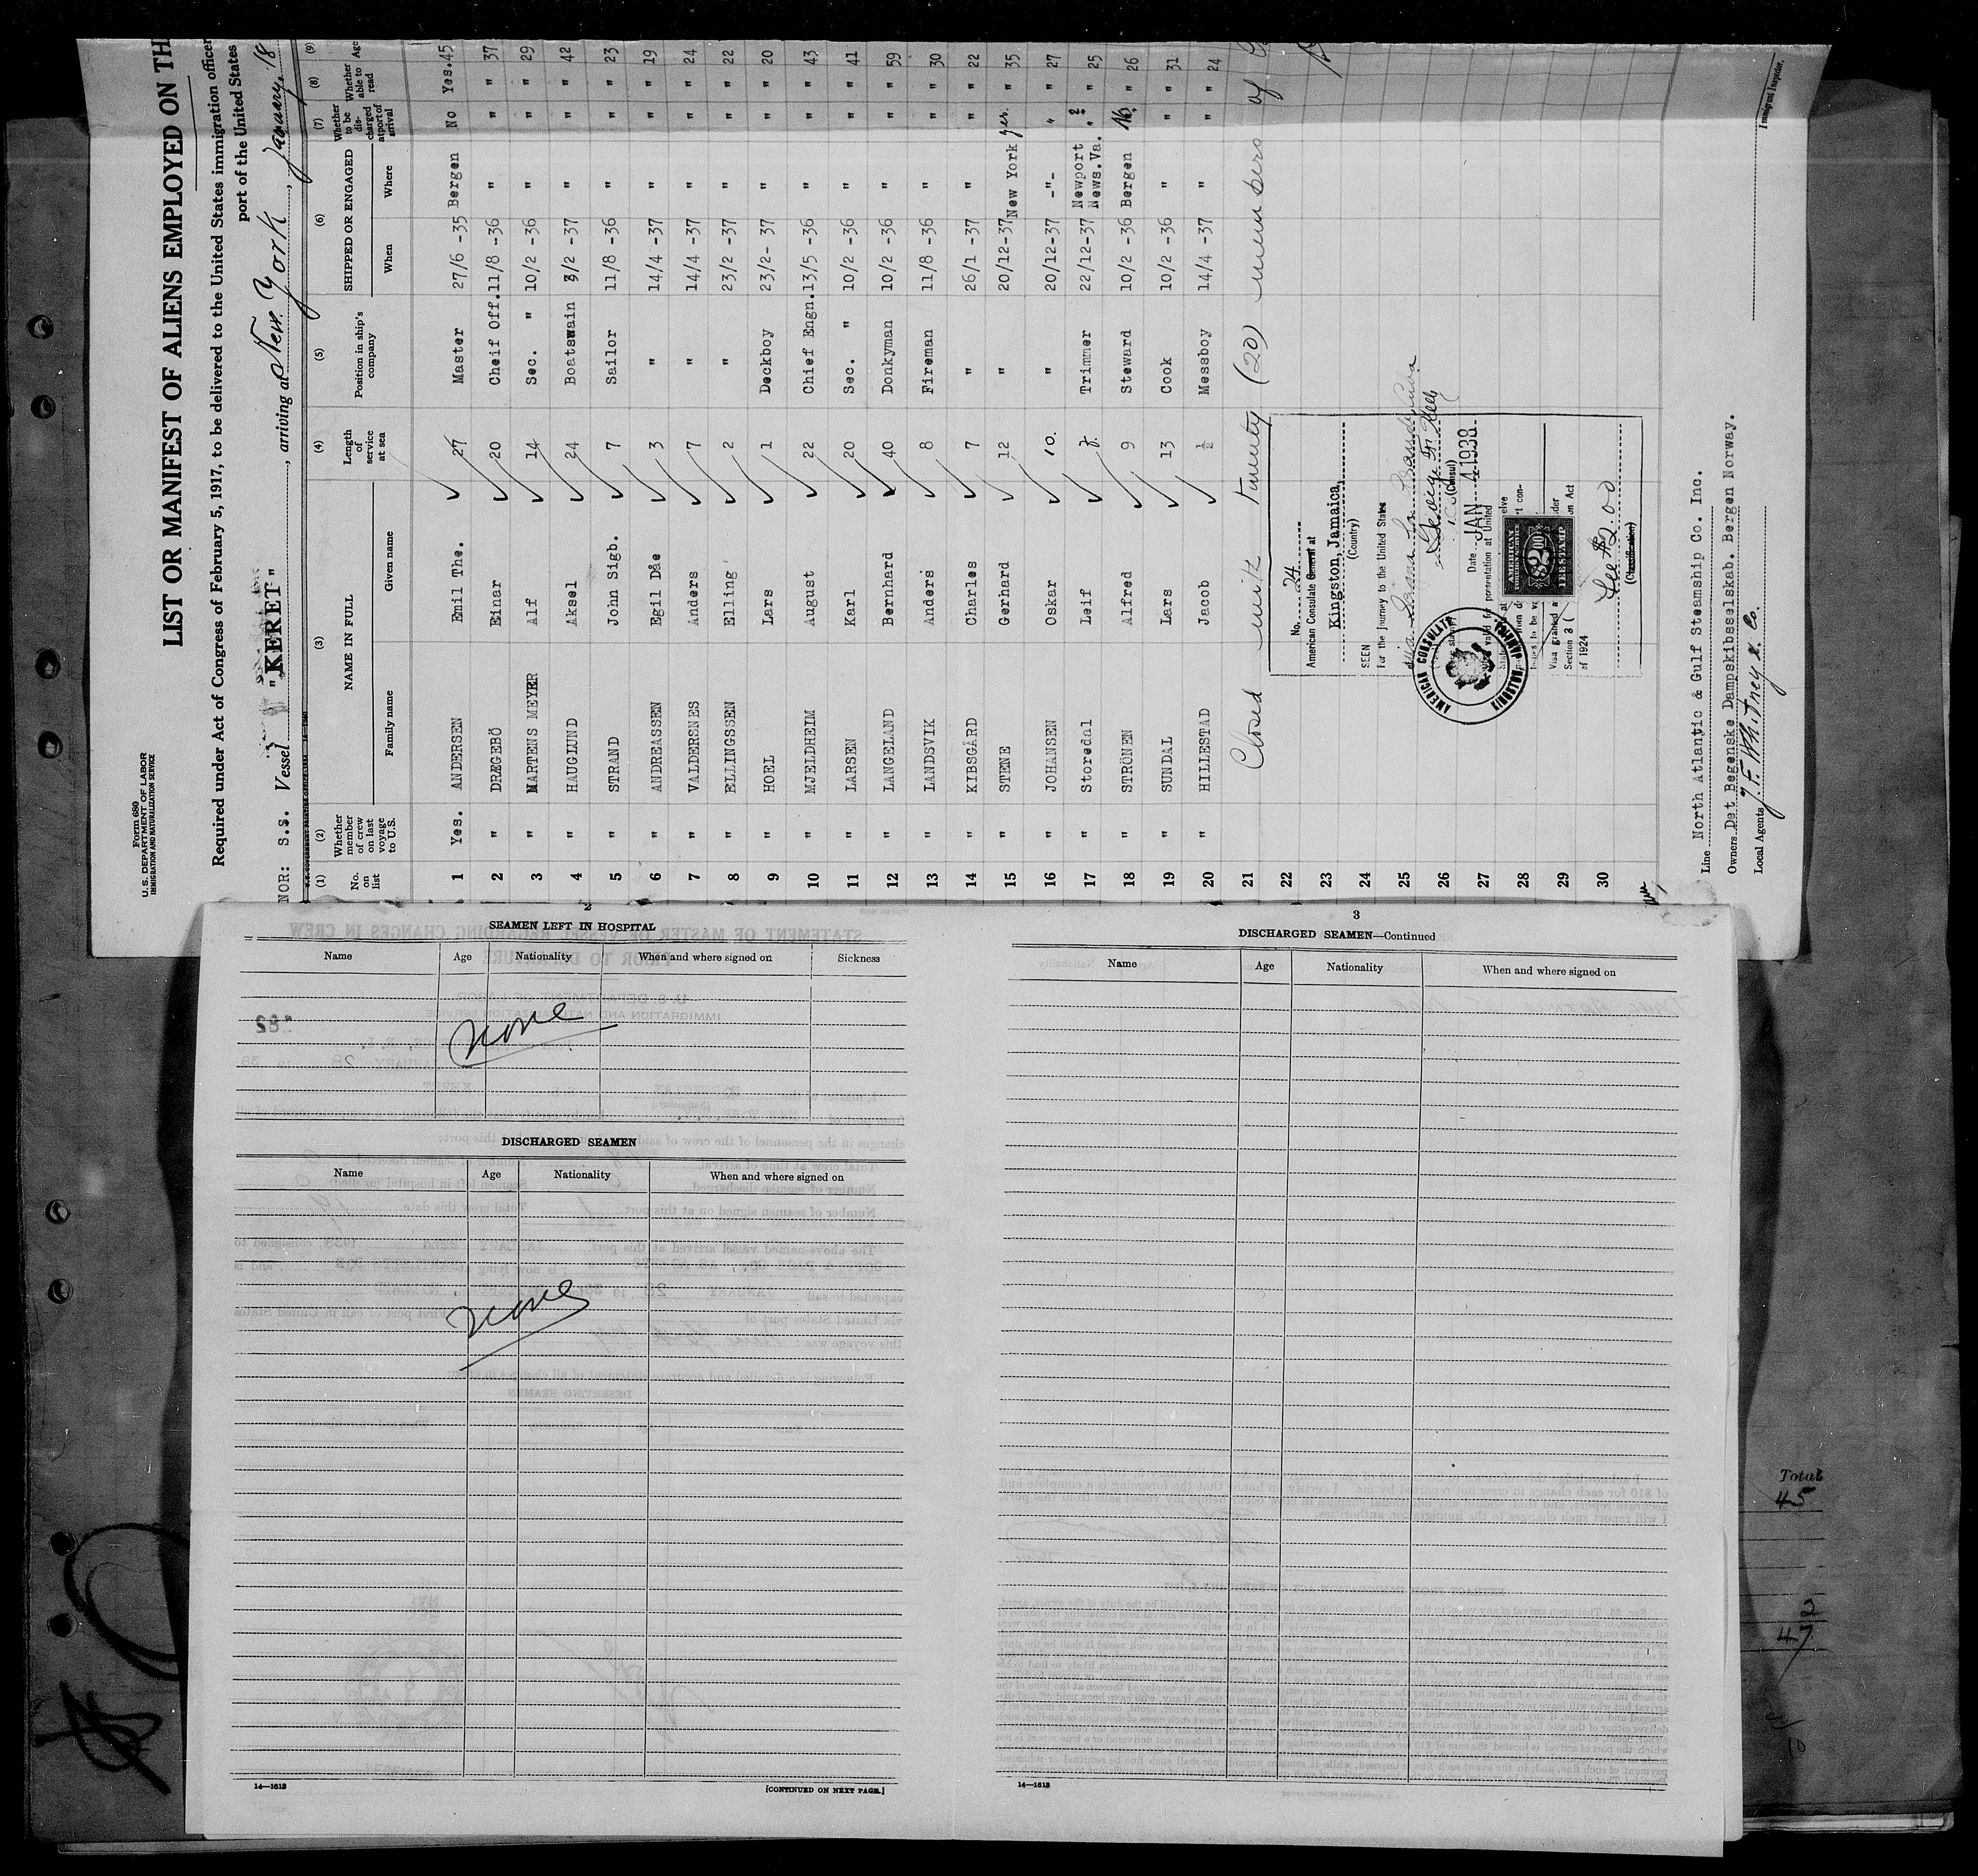 Form 680
U.S. DEPARTMENT OF LABOR
IMMIGRATION AND NATURALIZATION SERVICE
LIST OR MANIFEST OF ALIENS EMPLOYED ON TH
Required under Act of Congress of February 5, 1917, to be delivered to the United States immigration officer
port of the United States
NOR: S.S. Vessel "KERET", arriving at New York, January, 18
(1) (2) (3) (4) (5) (6) (7) (8) (9)
No. on list Whether member of crew on last voyage to U.S. NAME IN FULL Family name Given name Length of service at sea Position in ship's company SHIPPED OR ENGAGED When Where Whether to be discharged at port of arrival Whether able to read Age
1 Yes. ANDERSEN Emil The. 27 Master 27/6 -35 Bergen No Yes. 45
2 " DRÆGEBÖ Einar 20 Cheif Off. 11/8 -36 " " " 37
3 " MARTENS MEYER Alf 14 Sec. " 10/2 -36 " " " 29
4 " HAUGLUND Aksel 24 Boatswain 3/2 -37 " " " 42
5 " STRAND John Sigb. 7 Sailor 11/8 -36 " " " 23
6 " ANDREASSEN Egil Dåe 3 " 14/4 -37 " " " 19
7 " VALDERSNES Anders 7 " 14/4 -37 " " " 24
8 " ELLINGSSEN Elling 2 " 23/2 -37 " " " 22
9 " HOEL Lars 1 Deckboy 23/2- 37 " " " 20
10 " MJELDHEIM August 22 Chief Engn. 13/5 -36 " " " 43
11 " LARSEN Karl 20 Sec. " 10/2 -36 " " " 41
12 " LANGELAND Bernhard 40 Donkyman 10/2 -36 " " " 59
13 " LANDSVIK Anders 8 Fireman 11/8 -36 " " " 30
14 " KIBSGÅRD Charles 7 " 26/1 -37 " " " 22
15 " STENE Gerhard 12 " 20/12-37 New York yes. " 35
16 " JOHANSEN Oskar 10. " 20/12-37 -"- " " 27
17 " Storedal Leif 7. Trimmer 22/12-37 Newport News.Va. " " 25
18 " STRÖNEN Alfred 9 Steward 10/2 -36 Bergen No. " 26
19 " SUNDAL Lars 13 Cook 10/2 -36 " " " 31
20 " HILLESTAD Jacob ½ Messboy 14/4 -37 " " " 24
21 Closed with twenty (20) members of
22
23
24
25
26
27
28
29
30
No. 24
American Consulate General at
Kingston, Jamaica,
(Country)
SEEN
For the journey to the United States
(Consul)
Date JAN -4 1938
presentation at United
Visa granted
Section 3 (
of 1924
Fee $2.00
(Classification)
AMERICAN CONSULATE
KINGSTON, JAMAICA
AMERICAN
$2
FEE STAMP
Line North Atlantic & Gulf Steamship Co. Inc.
Owners Det Begenske Dampskibsselskab. Bergen Norway.
Local Agents J. F. Whitney & Co.
Immigrant Inspector.
2
SEAMEN LEFT IN HOSPITAL
Name Age Nationality When and where signed on Sickness
none
DISCHARGED SEAMEN
Name Age Nationality When and where signed on
none
14—1613 [CONTINUED ON NEXT PAGE.]
3
DISCHARGED SEAMEN—Continued
Name Age Nationality When and where signed on
14—1613
Total
45
2
47